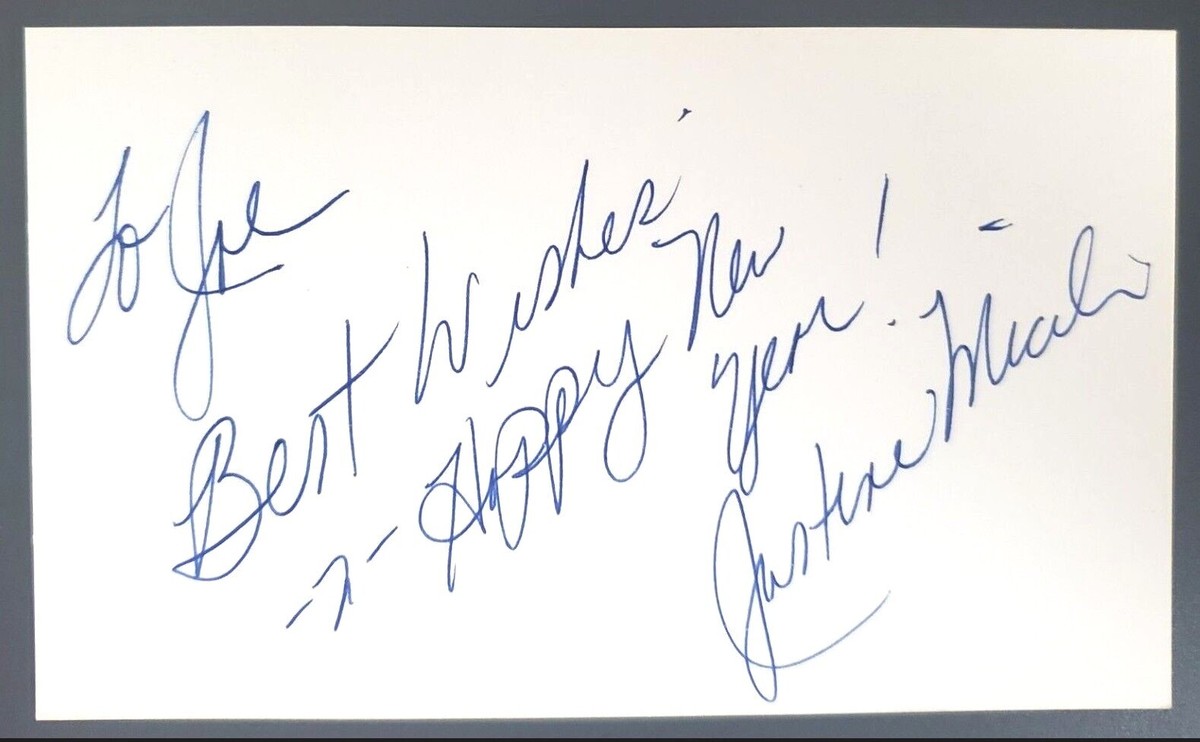 To Joe
Best Wishes
-n- Happy New
Year!
Justine Miceli